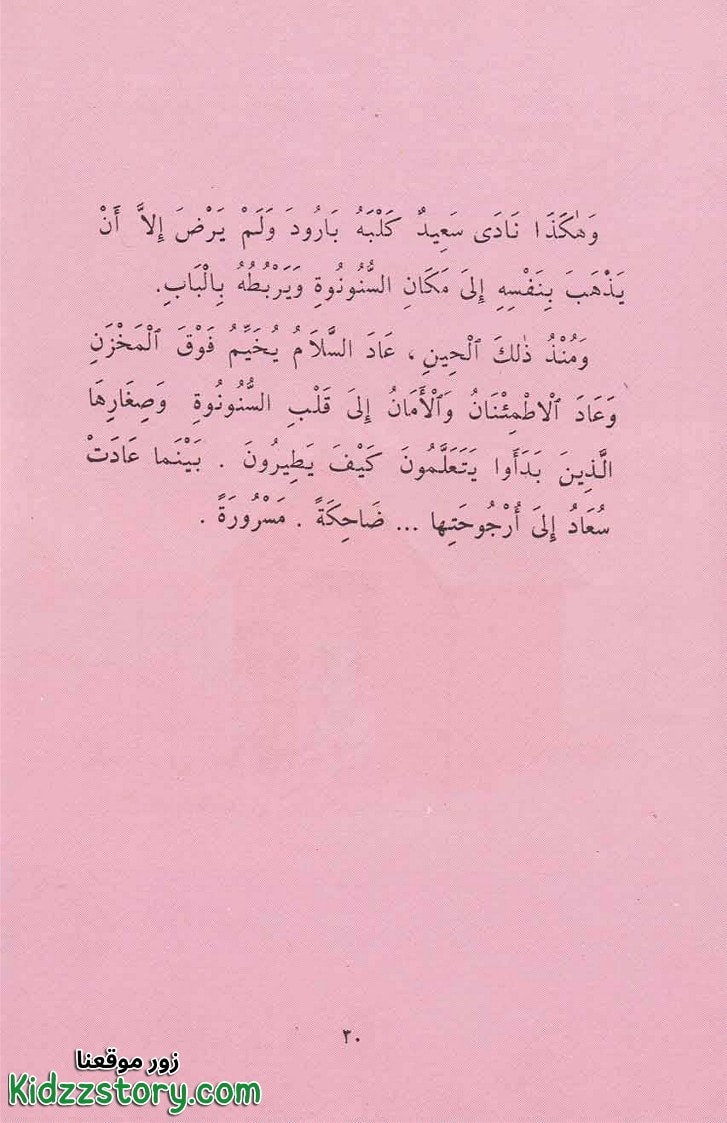 وَهٰكَذَا نَادَى سَعِيدٌ كَلْبَهُ بَارُودَ وَلَمْ يَرْضَ إِلاَّ أَنْ
يَذْهَبَ بِنَفْسِهِ إِلَى مَكَانِ السُّنُونُوةِ وَيَرْبُطُهُ بِالْبَابِ.
وَمُنْذُ ذٰلِكَ ٱلْحِينِ ، عَادَ السَّلَامُ يُخَيِّمُ فَوْقَ ٱلْمَخْزَنِ
وَعَادَ ٱلْاطْمِئْنَانُ وَٱلْأَمَانُ إِلَى قَلْبِ السُّنُونُوةِ وَصِغَارِهَا
الَّذِينَ بَدَأُوا يَتَعَلَّمُونَ كَيْفَ يَطِيرُونَ . بَيْنَما عَادَتْ
سُعَادُ إِلَى أُرْجُوحَتِها ... ضَاحِكَةً . مَسْرُورَةً .
٣٠
زور موقعنا
Kidzzstory.com